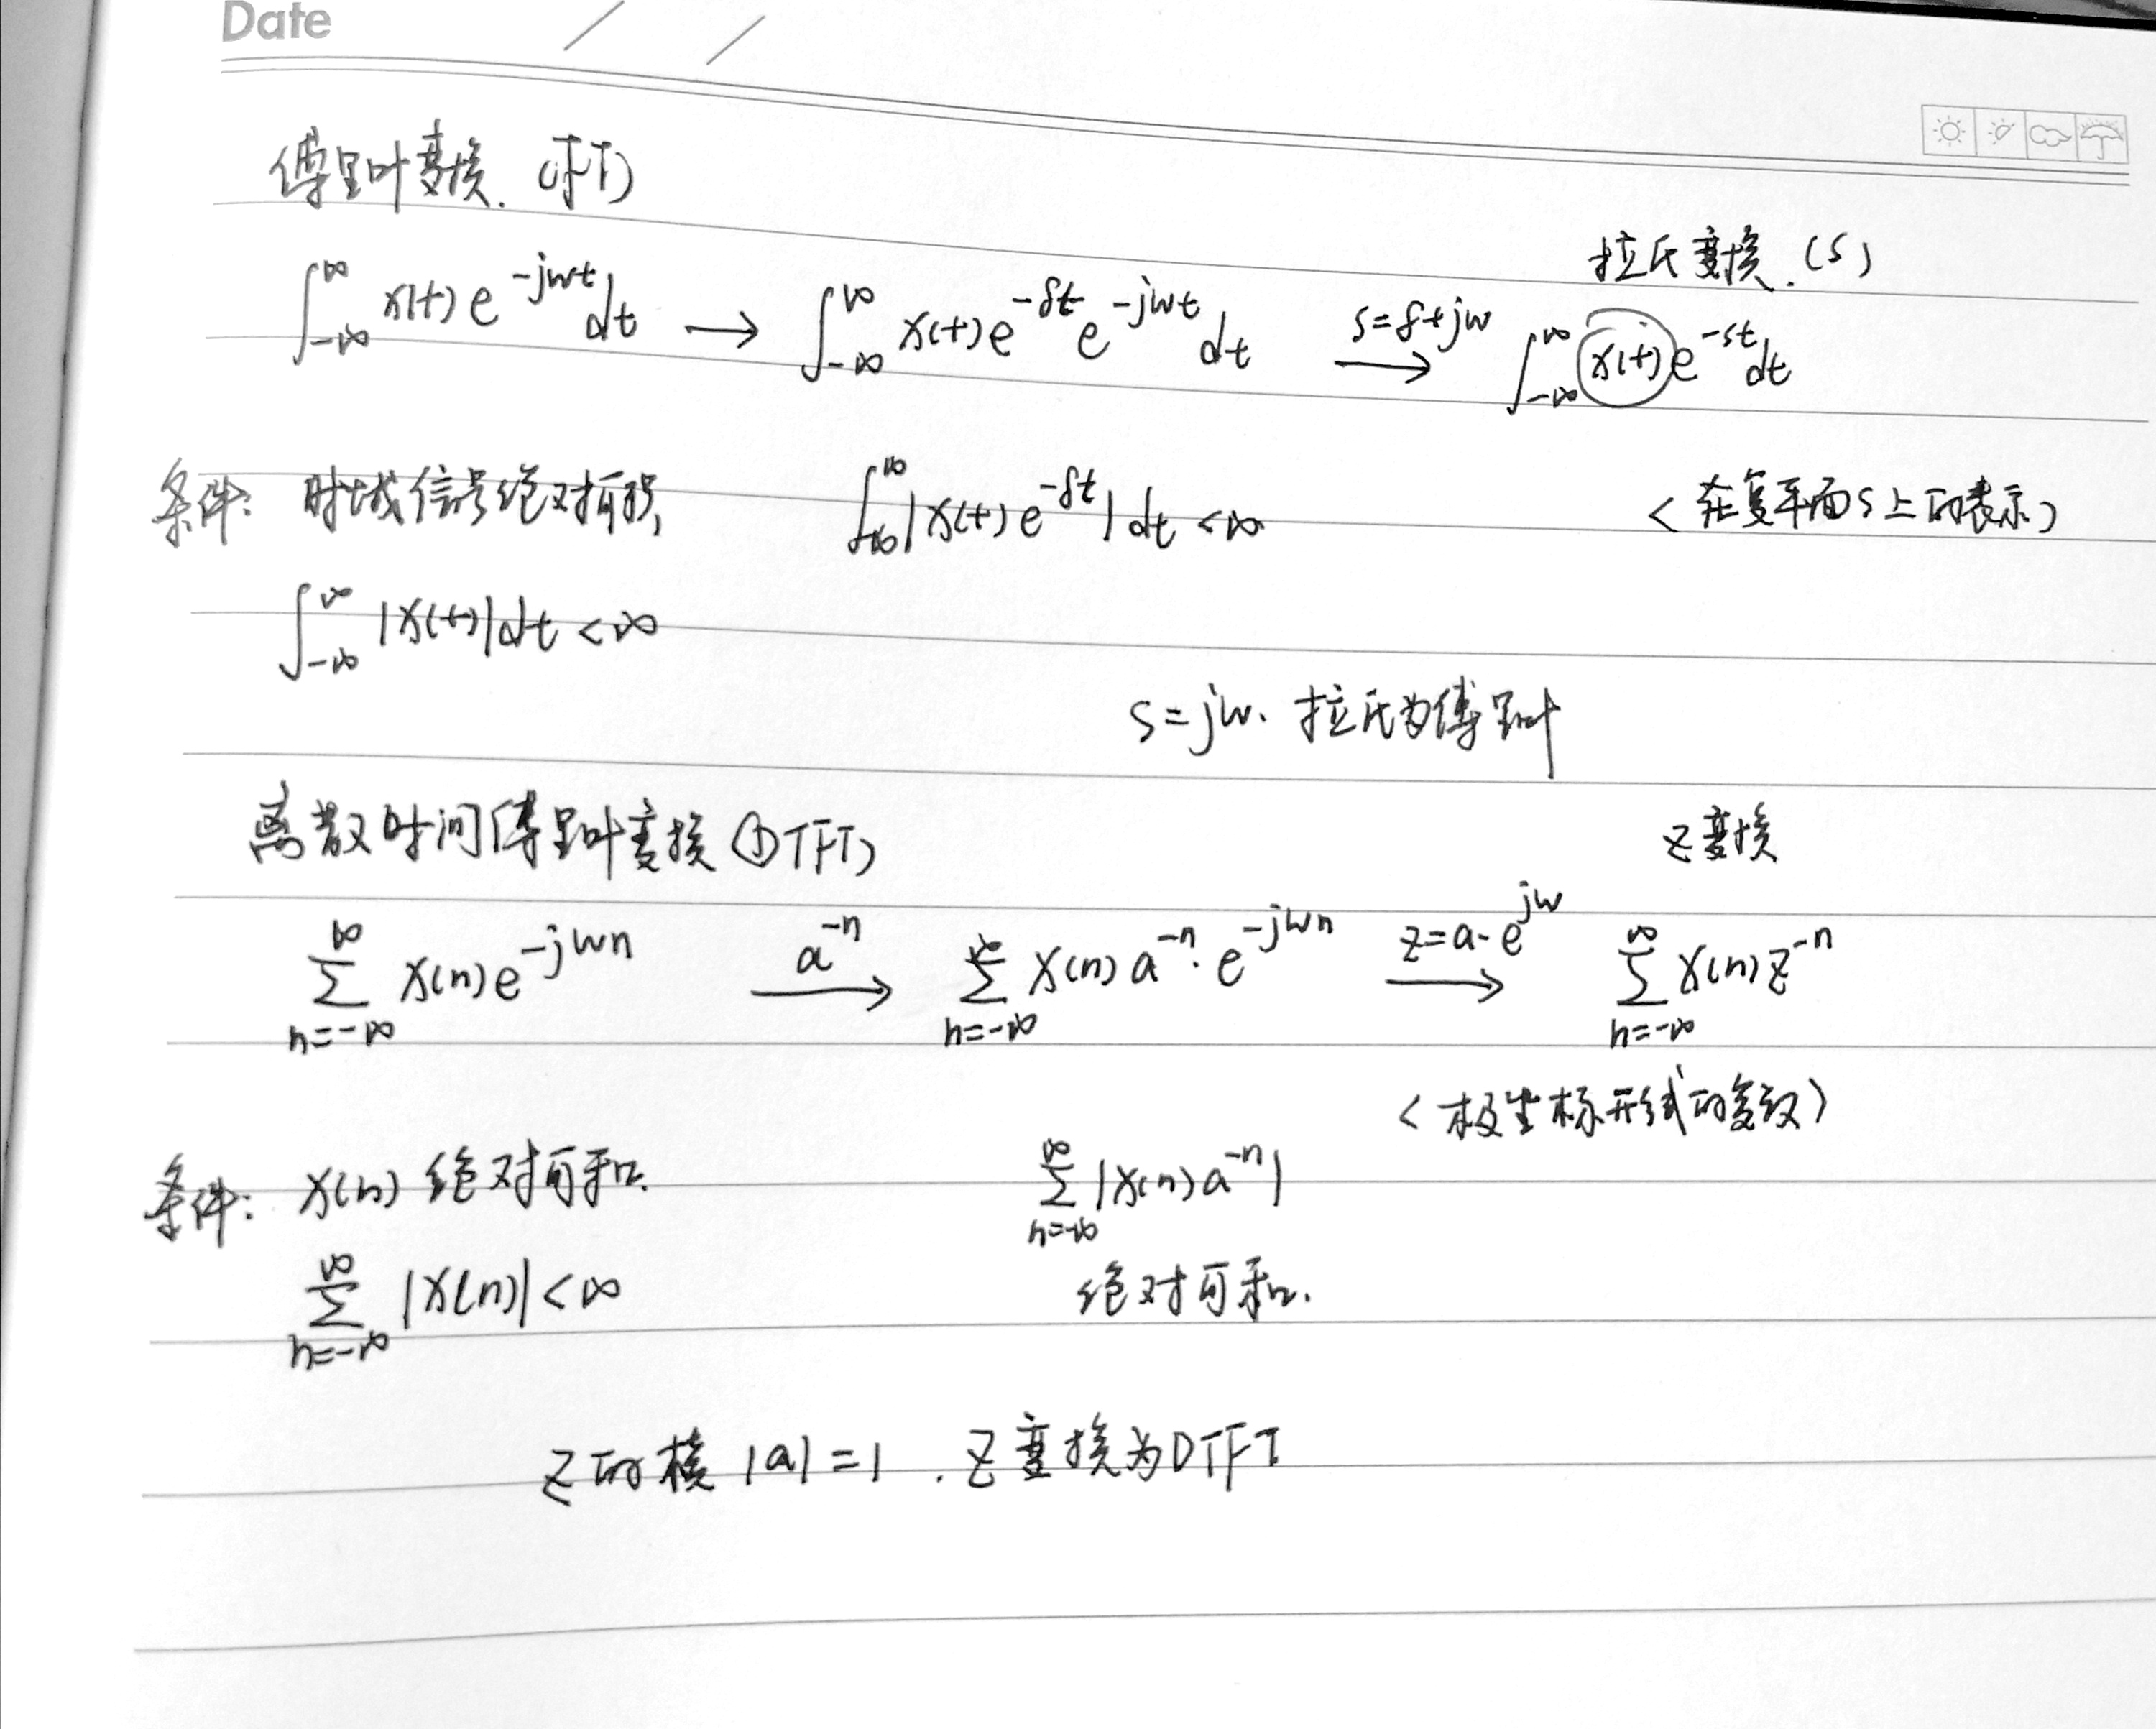 Date / /
傅里叶变换. (FT)
拉氏变换. (S)
∫_{-∞}^{∞} x(t) e^{-jwt} dt → ∫_{-∞}^{∞} x(t) e^{-δt} e^{-jwt} dt →(s=δ+jw) ∫_{-∞}^{∞} x(t) e^{-st} dt
条件: 时域信号绝对可积, ∫_{-∞}^{∞} |x(t) e^{-δt}| dt <∞ <在复平面S上的表示>
∫_{-∞}^{∞} |x(t)| dt <∞
s=jw. 拉氏为傅里叶
离散时间傅里叶变换 (DTFT) Z变换
∑_{n=-∞}^{∞} x(n) e^{-jwn} →(a^{-n}) ∑_{n=-∞}^{∞} x(n) a^{-n}·e^{-jwn} →(z=a·e^{jw}) ∑_{n=-∞}^{∞} x(n) z^{-n}
<极坐标形式的复数>
条件: x(n) 绝对可和. ∑_{n=-∞}^{∞} |x(n) a^{-n}|
∑_{n=-∞}^{∞} |x(n)| <∞ 绝对可和.
Z的模 |a|=1 . Z变换为DTFT